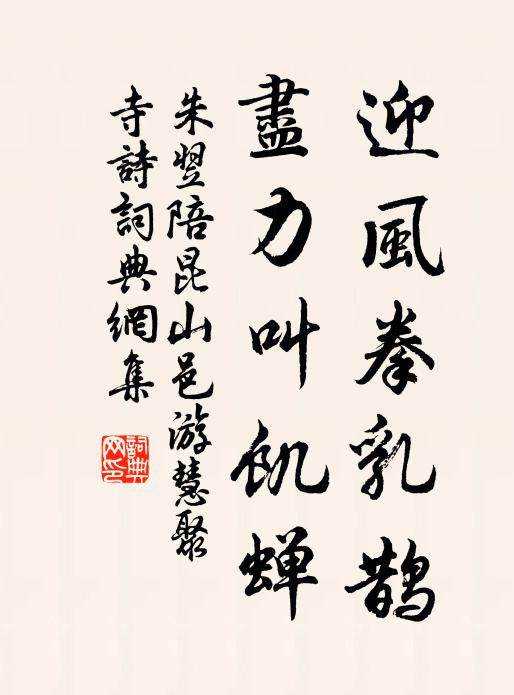 迎風拳乳鵲
盡力叫飢蝉
朱翌陪昆山邑游慧聚
寺詩詞典網集
詞典網印